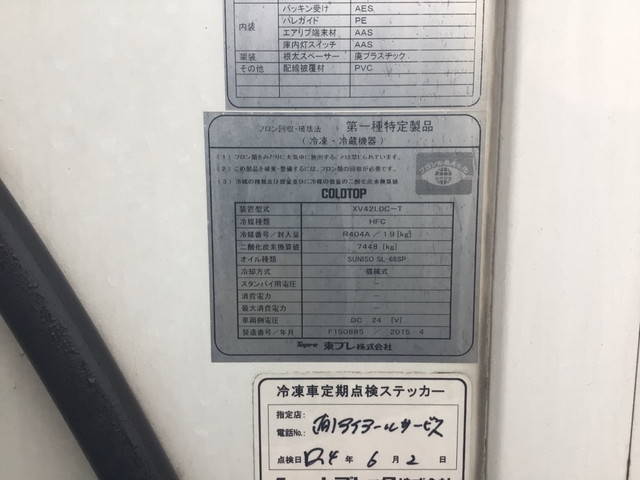 パッキン受け AES
内装 パレガイド PE
エアリブ端末材 AAS
庫内灯スイッチ AAS
架装 根太スペーサー 廃プラスチック
その他 配線被覆材 PVC
フロン回収・破壊法 第一種特定製品
(冷凍・冷蔵機器)
(1) フロン類をみだりに大気中に放出することは禁じられています。
(2) この製品を廃棄・整備するには、フロン類の回収が必要です。
(3) 冷媒の種類及び数量並びに冷媒の数量の二酸化炭素換算値
COLDTOP
装置型式 XV42LDC-T
冷媒種類 HFC
冷媒番号/封入量 R404A / 1.9 [kg]
二酸化炭素換算値 7448 [kg]
オイル種類 SUNISO SL-68SP
冷却方式 機械式
スタンバイ用電圧 -
消費電力 -
最大消費電力 -
車両側電圧 DC 24 [V]
製造番号/年月 F150885 / 2015-4
Topre 東プレ株式会社
冷凍車定期点検ステッカー
指定店:
電話No.: (有)ダイヨールサービス
点検日 R4 年 6 月 2 日